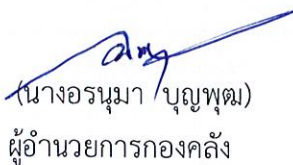 (นางอรนุมา บุญพุฒ)
ผู้อำนวยการกองคลัง